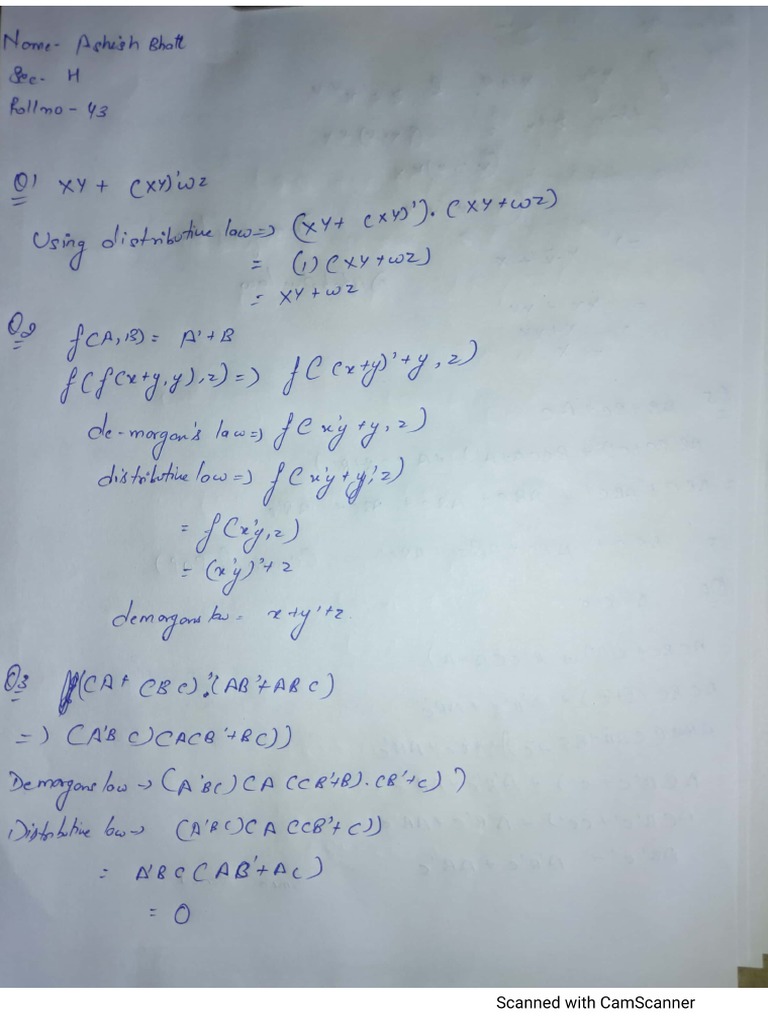 Name- Ashish Bhatt
Sec- H
Rollno - 43
Q1 XY + (XY)'wz
Using distributive law=> (XY+ (XY)'). (XY+wz)
= (1) (XY+wz)
= XY+wz
Q2 f(A,B)= A'+B
f(f(x+y,y),z)=> f((x+y)'+y,z)
de-morgan's law=> f(x'y'+y,z)
distributive law=> f(x'y+y'z)
= f(x'y,z)
= (x'y)'+z
demorgans law= x+y'+z.
Q3 ((A+ (BC)'.(AB'+ABC)
=) (A'BC)(A(B'+BC))
Demorgans law -> (A'BC)(A((B'+B).(B'+C))
Distributive law-> (A'BC)(A((B'+C))
= A'BC(AB'+AC)
= 0
Scanned with CamScanner